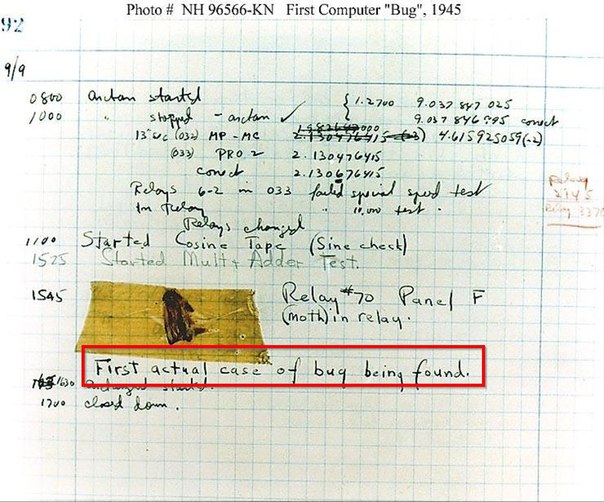 Photo # NH 96566-KN First Computer "Bug", 1945
92
9/9
0800 Antan started
1000 " stopped - antan ✓ { 1.2700 9.037 847 025
9.037 846 995 correct
13"uc (033) MP - MC 2.130476415 (-3) 4.615925059 (-2)
(033) PRO 2 2.130476415
correct 2.130676415
Relays 6-2 in 033 failed special speed test
In Relay " 10,000 test.
Relay
2145
Relay 3370
Relays changed
1100 Started Cosine Tape (Sine check)
1525 Started Mult + Adder Test.
1545 Relay #70 Panel F
(moth) in relay.
First actual case of bug being found.
1630 antangent started.
1700 closed down.